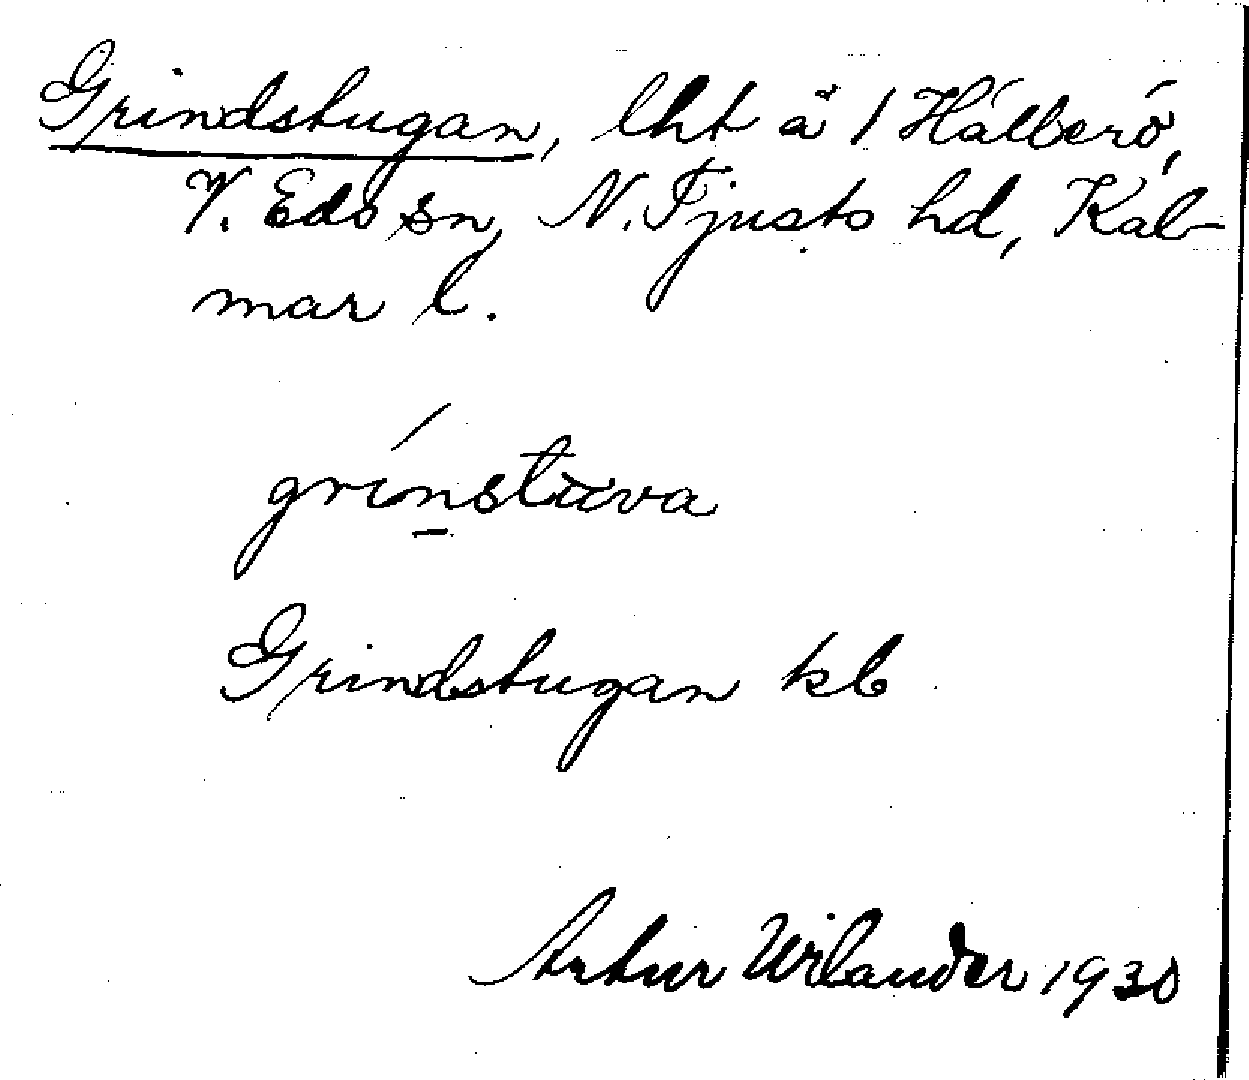 Grindstugan, lht å 1 Hállberö,
V. Eds sn, N. Tjusts hd, Kal-
mar l.
grínstuva
Grindstugan kb
Artur Wilander 1930